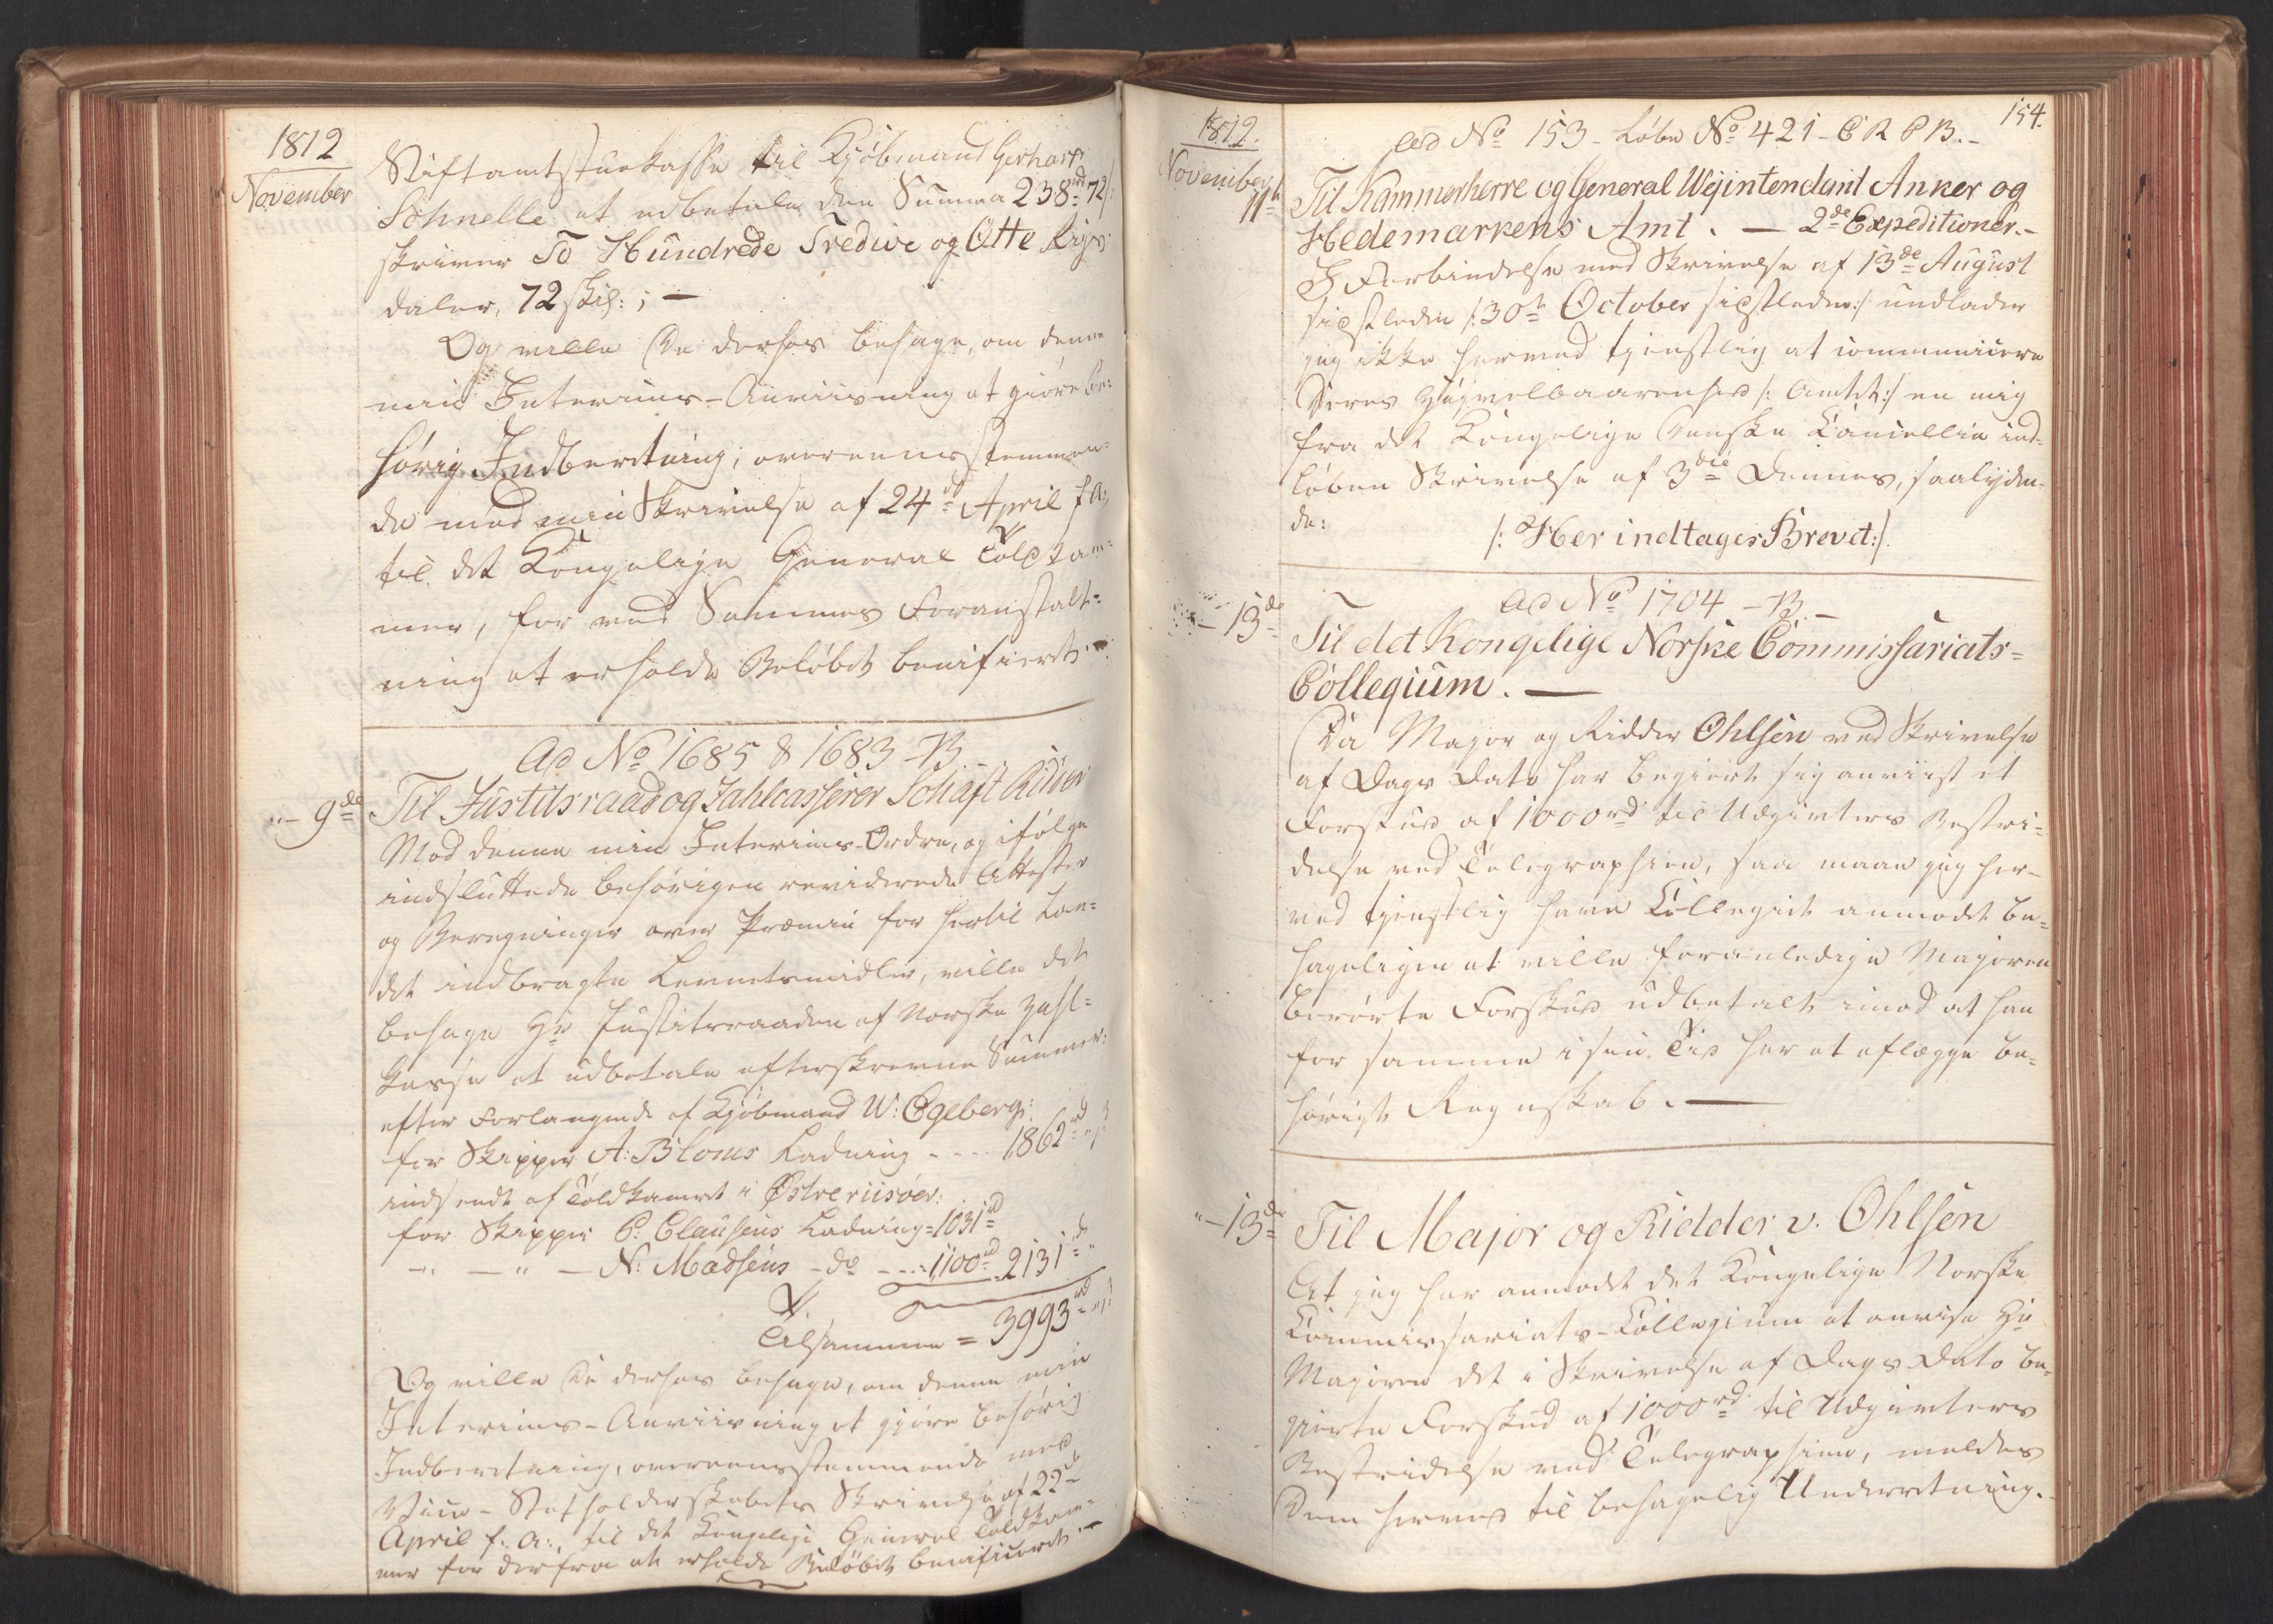 1812
November
Stiftamtstuekasse til Kjöbmand Gerhard
Schnelle at udbetale den Summa 238 rd 72 s:
skriver To Hundrede Tredive og Otte Rigs
daler, 72 skil: ; —
Og ville De derhos behage, om denne
min Interims-Anviisning at giöre be=
hörig Indberetning, overeensstemmen=
de med min Skrivelse af 24de April f. A.,
til det Kongelige General Toldkam=
mer, for ved Sammes Foranstalt=
ning at erholde Belöbet benificeret. —
Ad No 1685 & 1683 - B. -
"— 9de
Til Justitsraad og Zahlcasserer Schaft Ridder
Mod denne min Interims-Ordre, og ifölge
indsluttede behörigen reviderede Attester
og Beregninger over Præmie for hertil Lan=
det indbragte Levnetsmidler, ville det
behage Hr Justitsraaden af Norske Zahl=
Kasse at udbetale efterskrevne Summer:
efter Forlangende af Kjöbmand W: Egeberg:
for Skipper A: Bloms Ladning - - - - 1862 rd " s
indsendt af Toldkamret i Østre riisöer:
for Skipper C: Clausens Ladning = 1031 rd
—" — " — N: Madsens - do - - - - 1100 rd 2131 rd "
Tilsammen = 3993 rd " s
Og ville De derhos behage, om denne min
Interims-Anviisning at gjöre behörig
Indberetning, overeensstemmende med
Vice-Statholderskabets Skrivelse af 22de
April f. A:, til det Kongelige General Toldkam=
mer for derfra at erholde Belöbet benificeret. —
154.
1812.
November
11te
ad No 153 - Löbe No 421 - C R P B. -
Til Kammerherre og General Vejintendant Anker og
Hedemarkens Amt. — 2de Expeditioner. -
I Forbindelse med Skrivelse af 13de August
sidstleden /: 30te October sidstleden :/ undlader
jeg ikke herved tjenstlig at communicere
Deres Höjvelbaarenhed /: Amtet :/ en mig
fra det Kongelige Danske Cancellie ind=
löben Skrivelse af 3die dennes, saalyden=
de:
/: Her indtages Brevet :/
ad No 1704 - B. —
— 13de
Til det Kongelige Norske Commissariats=
Collegium. —
Da Major og Ridder Ohlsen ved Skrivelse
af Dags Dato har begjert sig anviist et
Forskud af 1000 rd til Udgivters Bestri=
delse ved Telegraphien, saa maae jeg her=
ved tjenstlig have Collegiet anmodet be=
hageligen at ville foranledige Majoren
berörte Forskud udbetalt imod at han
for samme i sin Tid har at aflægge be=
hörigt Regnskab. —
"— 13de
Til Major og Ridder v. Ohlsen
At jeg har anmodet det Kongelige Norske
Commissariats-Collegium at anvise Hr
Majoren det i Skrivelse af Dags Dato be=
gjerte Forskud af 1000 rd til Udgivters
Bestridelse ved Telegraphien, meldes
Dem herved til behagelig Underretning. -